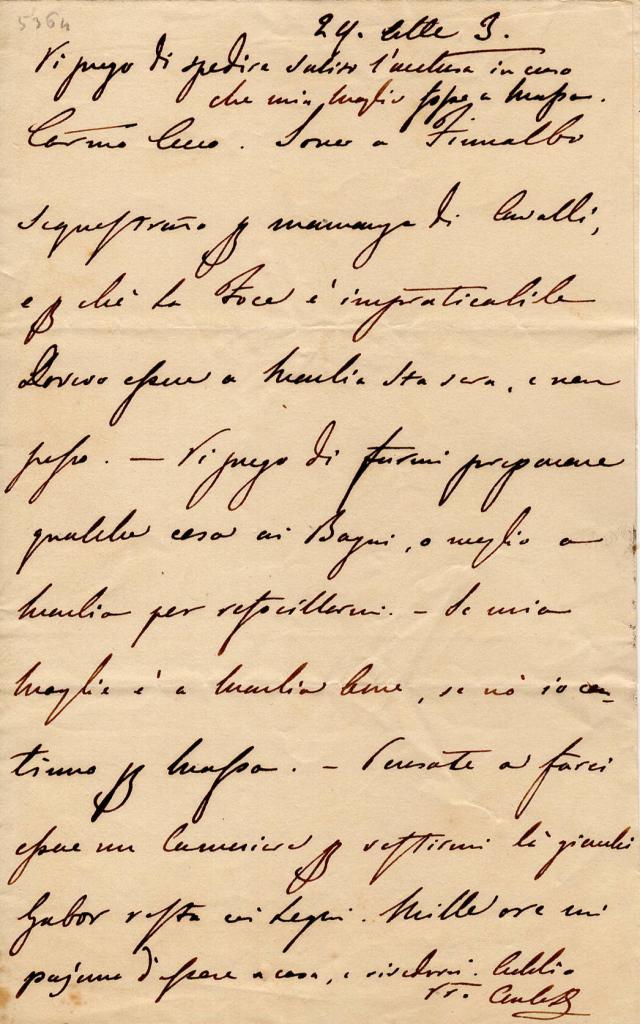 5364
29. alle 3.
Vi prego di spedire subito l'acclusa in caso
che mia Moglie fosse a Massa.
Carmo Ceco. Sono a Fiumalbo
sequestrato p mancanza di Cavalli,
e p chè la Foce è impraticabile
Dovevo essere a Marlia sta sera, e non
posso. — Vi prego di farmi preparare
qualche cosa ai Bagni, o meglio a
Marlia per rifocillarmi. — Se mia
Moglie è a Marlia bene, se nò io con-
tinuo p Massa. — Pensate a farci
essere un Cameriere p vestirmi là giacchè
Gabor resta ai Legni. Mille ore mi
pajono d'essere a casa, e rivedervi. Addio